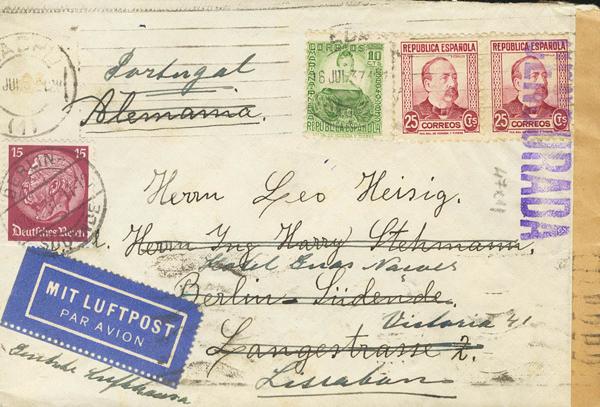 Portugal
Alemania.
CORREOS 10 cts
REPUBLICA ESPAÑOLA
REPUBLICA ESPAÑOLA
25 CORREOS Cts
REPUBLICA ESPAÑOLA
25 CORREOS Cts
6 JUL 37
15 15
Deutsches Reich
BERLIN
Herrn Leo Heisig.
Herrn Ing Harry Stehmann,
Hotel
Berlin-Südende.
Victoria 41
Langestrasse 2.
Lissabon
MIT LUFTPOST
PAR AVION
Deutsche Lufthansa